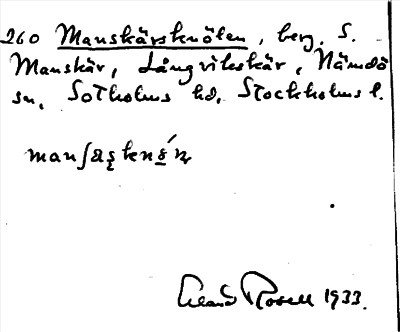 260 Manskärsknölen, berg, S.
Manskär, Långvikskär, Nämdö
sn, Sotholms hd, Stockholms l.
Rosell 1933.